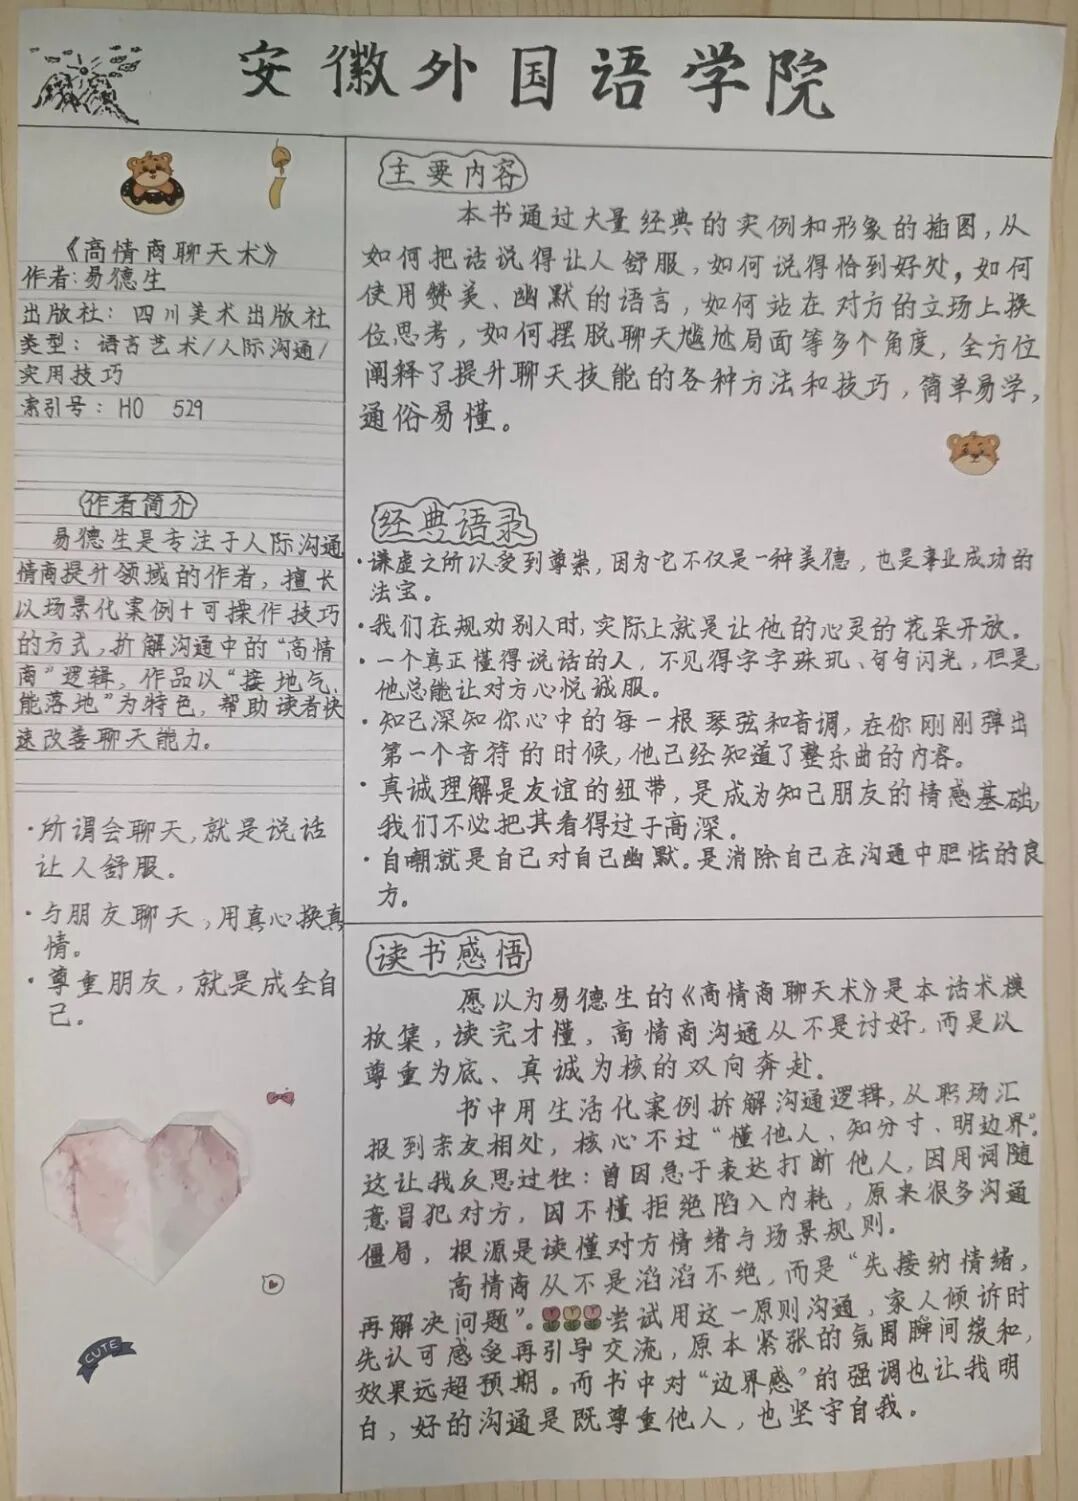 安徽外国语学院
《高情商聊天术》
作者:易德生
出版社：四川美术出版社
类型：语言艺术/人际沟通/
实用技巧
索引号：H0 529
作者简介
易德生是专注于人际沟通
情商提升领域的作者，擅长
以场景化案例+可操作技巧
的方式，拆解沟通中的“高情
商”逻辑，作品以“接地气、
能落地”为特色，帮助读者快
速改善聊天能力。
·所谓会聊天，就是说话
让人舒服。
·与朋友聊天，用真心换真
情。
·尊重朋友，就是成全自
己。
CUTE
主要内容
本书通过大量经典的实例和形象的插图，从
如何把话说得让人舒服，如何说得恰到好处，如何
使用赞美、幽默的语言，如何站在对方的立场上换
位思考，如何摆脱聊天尴尬局面等多个角度，全方位
阐释了提升聊天技能的各种方法和技巧，简单易学，
通俗易懂。
经典语录
·谦虚之所以受到尊崇，因为它不仅是一种美德，也是事业成功的
法宝。
·我们在规劝别人时，实际上就是让他的心灵的花朵开放。
·一个真正懂得说话的人，不见得字字珠玑、句句闪光，但是，
他总能让对方心悦诚服。
·知己深知你心中的每一根琴弦和音调，在你刚刚弹出
第一个音符的时候，他已经知道了整乐曲的内容。
·真诚理解是友谊的纽带，是成为知己朋友的情感基础，
我们不必把其看得过于高深。
·自嘲就是自己对自己幽默。是消除自己在沟通中胆怯的良
方。
读书感悟
愿以为易德生的《高情商聊天术》是本话术模
板集，读完才懂，高情商沟通从不是讨好，而是以
尊重为底、真诚为核的双向奔赴。
书中用生活化案例拆解沟通逻辑，从职场汇
报到亲友相处，核心不过“懂他人、知分寸、明边界”。
这让我反思过往：曾因急于表达打断他人，因用词随
意冒犯对方，因不懂拒绝陷入内耗，原来很多沟通
僵局，根源是读懂对方情绪与场景规则。
高情商从不是滔滔不绝，而是“先接纳情绪，
再解决问题”。尝试用这一原则沟通，家人倾诉时
先认可感受再引导交流，原本紧张的氛围瞬间缓和，
效果远超预期。而书中对“边界感”的强调也让我明
白，好的沟通是既尊重他人，也坚守自我。